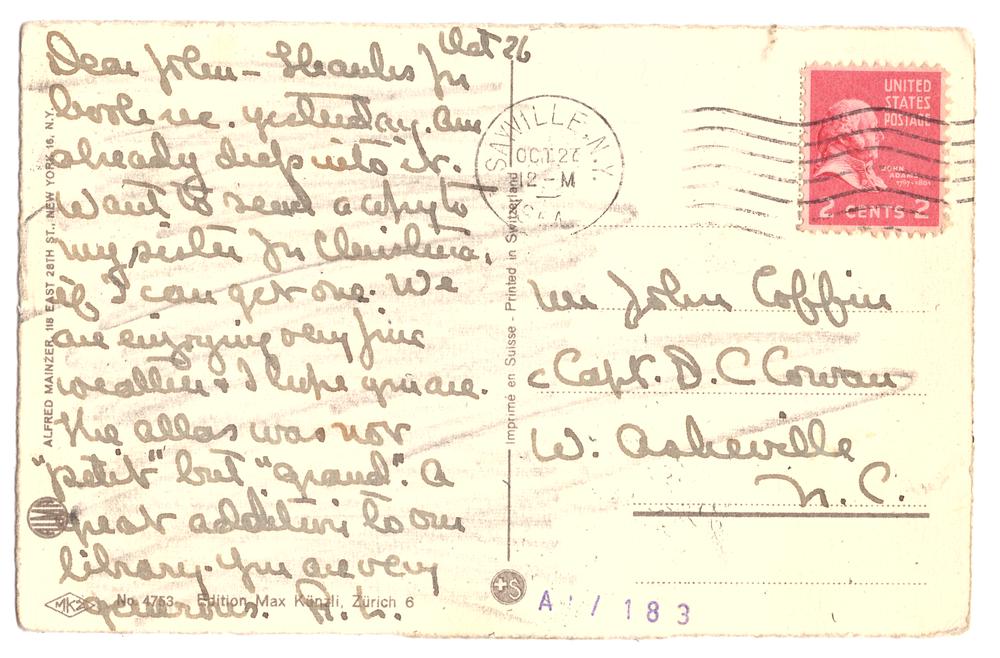 Oct 26
Dear John - Thanks for
book rec. yesterday. am
already deep into it.
Want to send a copy to
my sister for Christmas,
if I can get one. We
are enjoying very fine
weather & I hope you are.
The atlas was not
"petit" but "grand". A
great addition to our
library. You are very
generous. R.L.
SAYVILLE, N.Y.
OCT 26
12 - M
1944
UNITED
STATES
POSTAGE
JOHN
ADAMS
1797-1801
2 CENTS 2
Mr John Coffin
Capt. D. C Cowan
W. Asheville
N. C.
ALFRED MAINZER, 118 EAST 28TH ST., NEW YORK 16, N.Y.
Imprimé en Suisse - Printed in Switzerland
MK
No. 4753 Edition Max Künzli, Zürich 6
+S
A 183